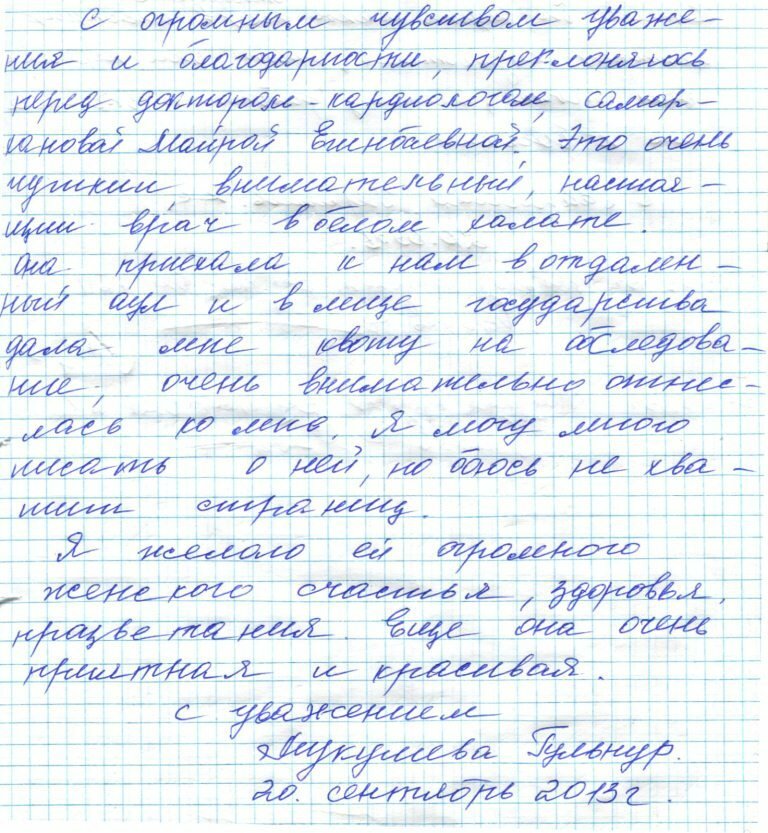 С огромным чувством уваже-
ния и благодарности, преклоняюсь
перед доктором-кардиологом, Самар-
хановой Майрой Ешибаевной. Это очень
чуткий внимательный, настоя-
щий врач в белом халате.
Она приехала к нам в отдален-
ный аул и в лице государства
дала мне квоту на обследова-
ние, очень внимательно отнес-
лась ко мне. Я могу много
писать о ней, но боюсь не хва-
тит страниц.
Я желаю ей огромного
женского счастья, здоровья,
працветания. Еще она очень
приятная и красивая.
с уважением
Гульнур.
20. сентябрь 2013 г.